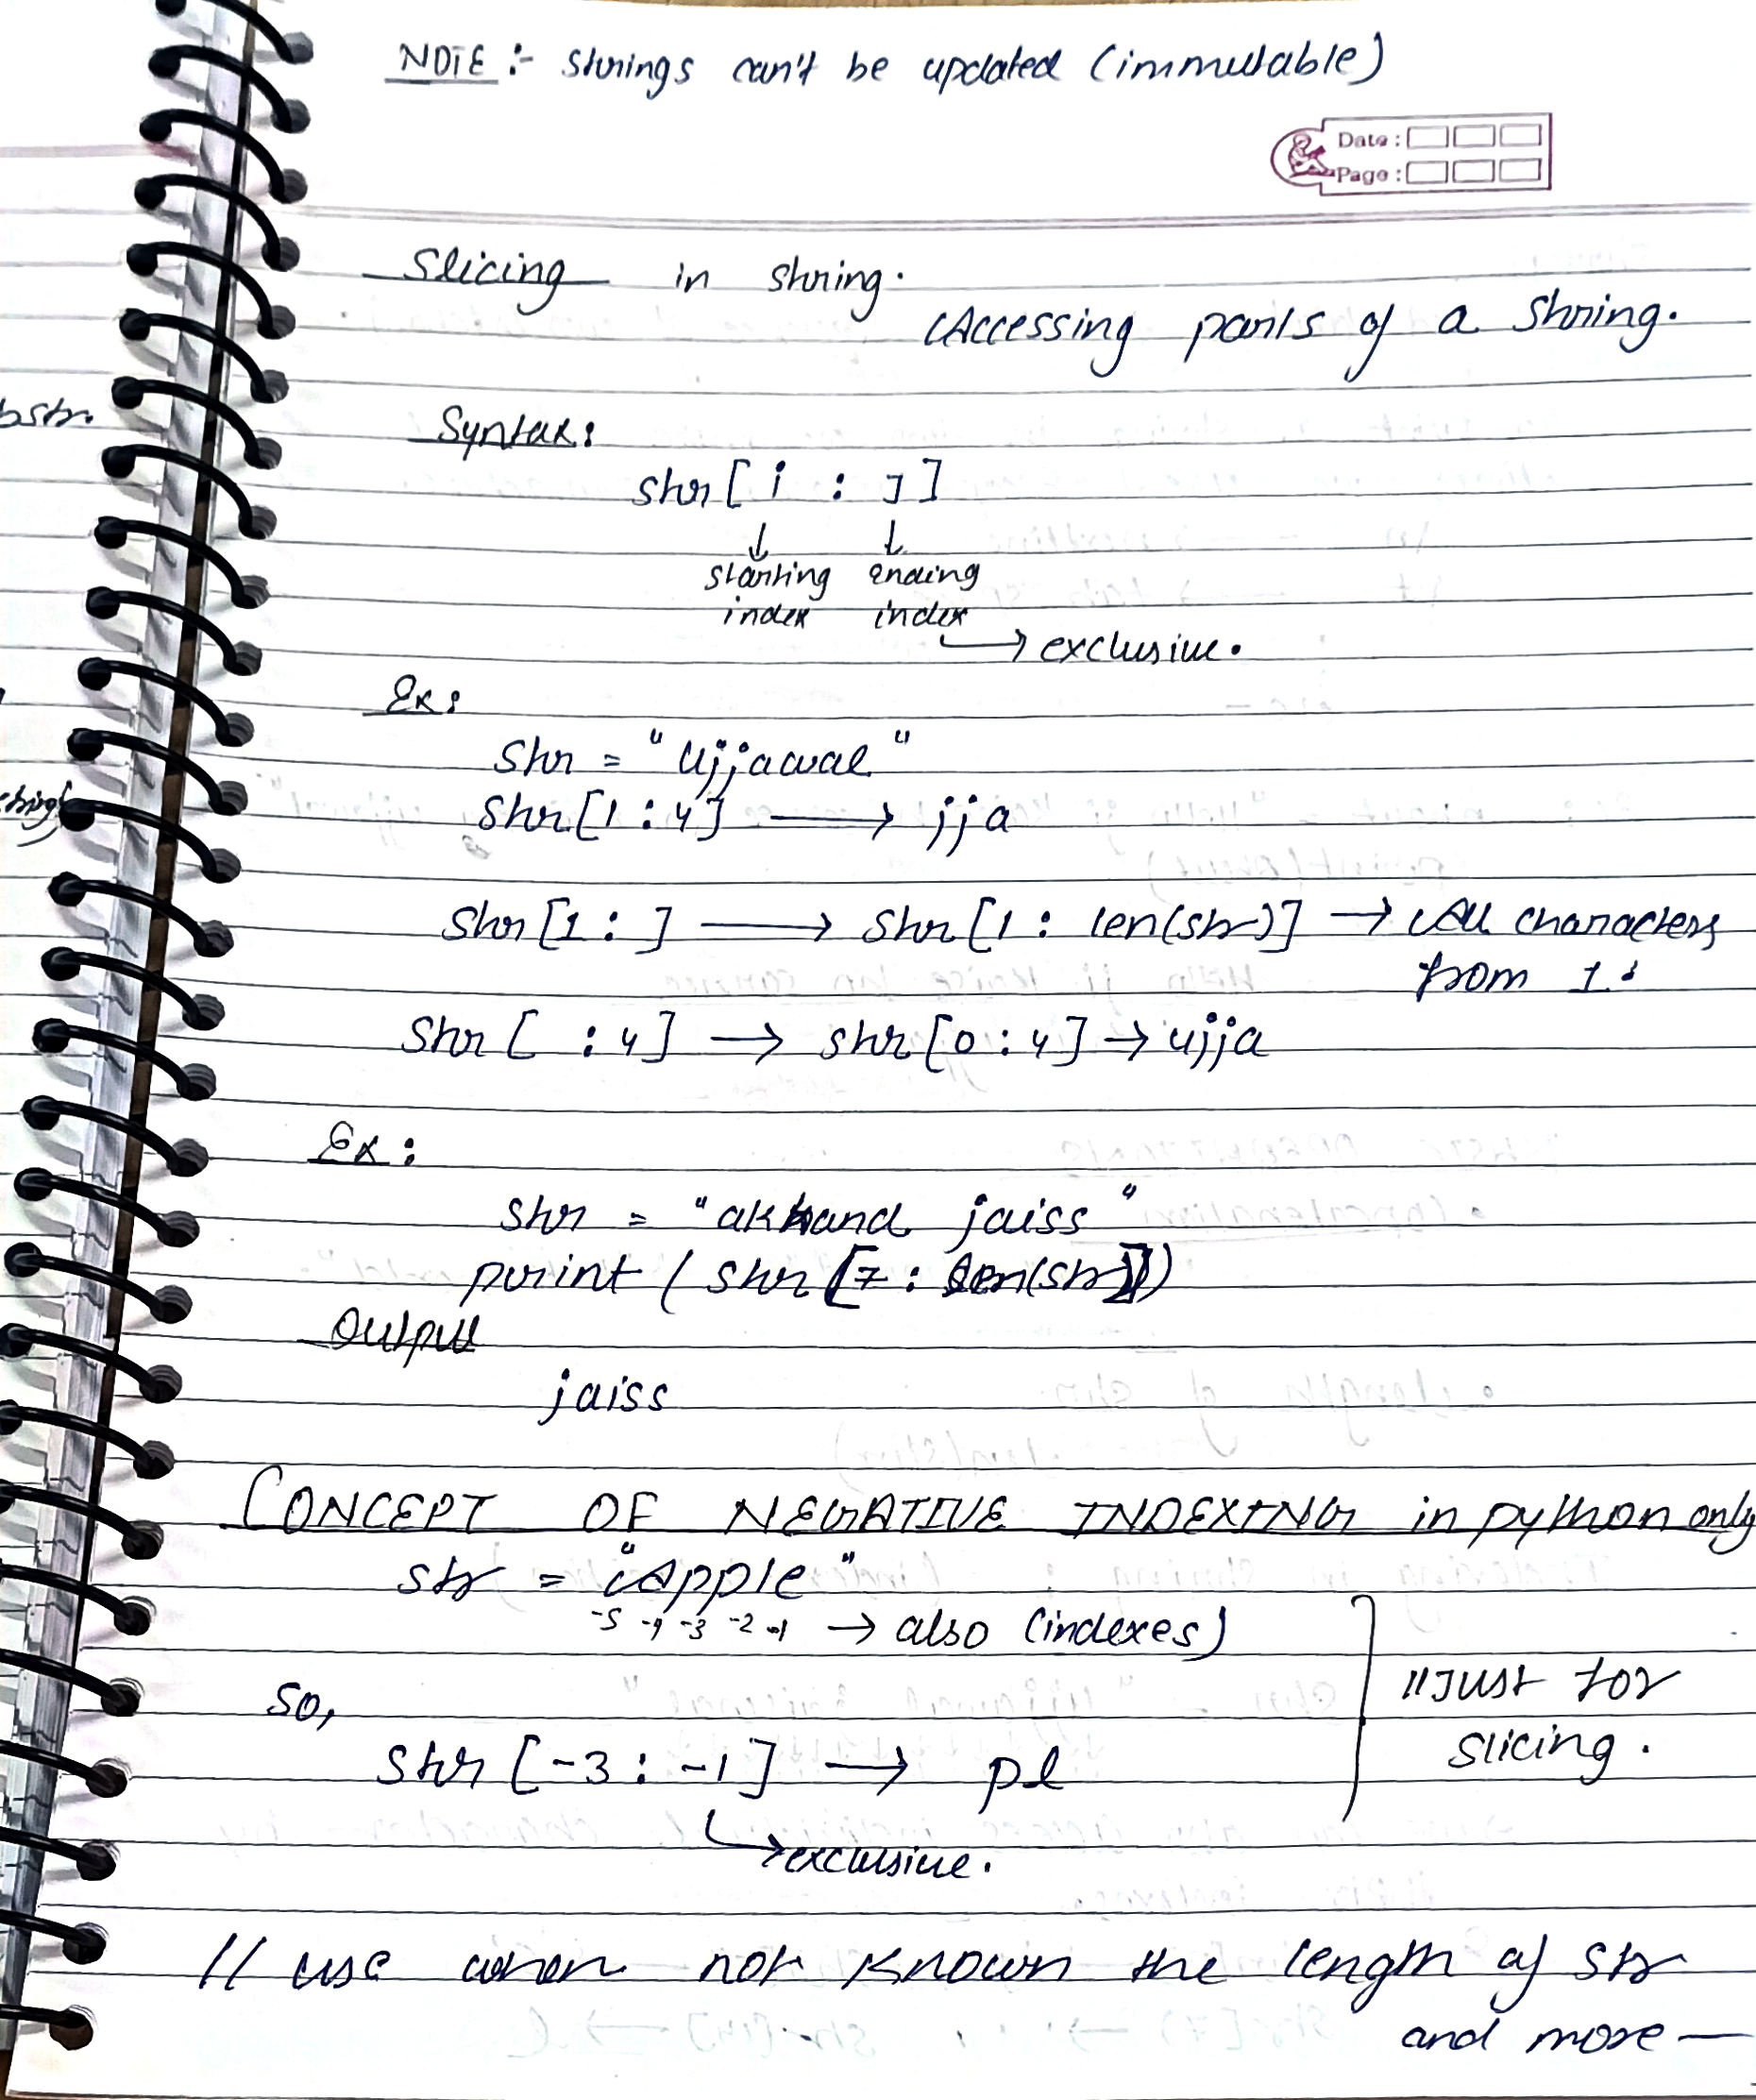 NOTE :- strings can't be updated (immutable)
Date :
Page :
Slicing in string.
Accessing parts of a string.
Syntax:
str [ i : j ]
starting ending
index index
→ exclusive.
Ex:
str = "Ujjawal"
str [1 : 4] → jja
str [1 : ] → str [1 : len(str)] → All characters
from 1.
str [ : 4] → str [0 : 4] → ujja
Ex :
str = "akhand jaiss"
print ( str [7 : len(str)])
Output
jaiss
CONCEPT OF NEGATIVE INDEXING in python only
str = "Apple"
-5 -4 -3 -2 -1 → also (indexes)
so,
str [-3 : -1] → pl
→ exclusive.
// Just for
slicing.
// use when not known the length of str
and more —